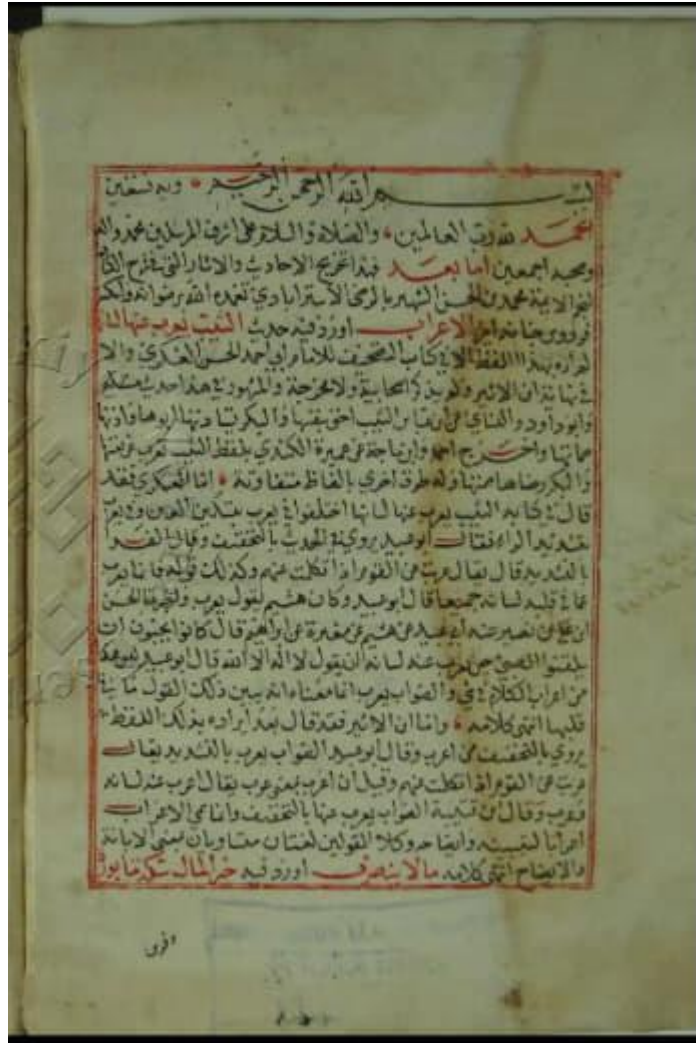 بسم الله الرحمن الرحيم وبه نستعين
الحمد لله رب العالمين والصلاة والسلام على اشرف المرسلين محمد واله
وصحبه اجمعين اما بعد فهذا تخريج الاحاديث والاثار التي في شرح الكافية
لنجم الايمة محمد بن الحسن الشهير بالرضى الاسترابادي تغمده الله برضوانه
الاعراب اورد فيه حديث الثيب يعرب عنها لسانها
بهذا اللفظ الا في كتاب التصحيف للامام ابي احمد الحسن العسكري والا
في نهاية ابن الاثير ولم يذكر صحابيه ولا مخرجه والمشهور في هذا حديث مسلم
وابو داود والنساي عن ابن عباس الثيب احق بنفسها والبكر يستاذنها ابوها واذنها
صماتها واخرج احمد وابن ماجة عن عميرة الكندي بلفظ الثيب تعرب عن نفسها
والبكر رضاها صمتها وله طرق اخرى بالفاظ متقاربة اما العسكري فقد
قال في كتابه الثيب يعرب عنها لسانها اختلفوا في يعرب بتسكين العين وفي يعرب
بتشديد الراء فقال ابو عبيد يروى في الحديث بالتخفيف وقال الفراء
بالتشديد قال يقال عربت عن القوم اذا تكلمت عنهم وكذلك قوله فانما يعرب
عما في قلبه لسانه جميعها قال ابو عبيد وكان هشيم يقول يعرب
ابن علي بن نصير عنه ابي عبيد عن هشيم عن مغيرة عن ابراهيم قال كانوا يحبون ان
يلقنوا الصبي حين يعرب عنه لسانه ان يقول لا اله الا الله قال ابو عبيد
من اعراب الكلام والصواب يعرب انما معناه انه يبين ذلك القول ما في
قلبها انتهى كلامه واما ابن الاثير فقد قال بعد ايراده بذلك اللفظ
يروى بالتخفيف من اعرب وقال ابو عبيد الصواب يعرب بالتشديد يقال
عربت عن القوم اذا تكلمت عنهم وقيل ان اعرب بمعنى عرب يقال اعرب عنه لسانه
وعرب وقال ابن قتيبة الصواب يعرب عنها بالتخفيف وانما سمى الاعراب
اعرابا لتبيينه وايضاحه وكلا القولين لغتان متساويان بمعنى الابانة
والايضاح انتهى كلامه ما لا ينصرف اورد فيه خير المال سكة مابورة